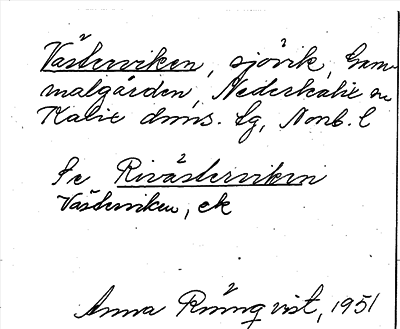 Västerviken, sjövik, Gam-
malgården, Nederkalix sn
Kalix dmns. tg, Norrb. l
Se Rivästerviken
Västerviken, ek
Anna Rönnqvist, 1951